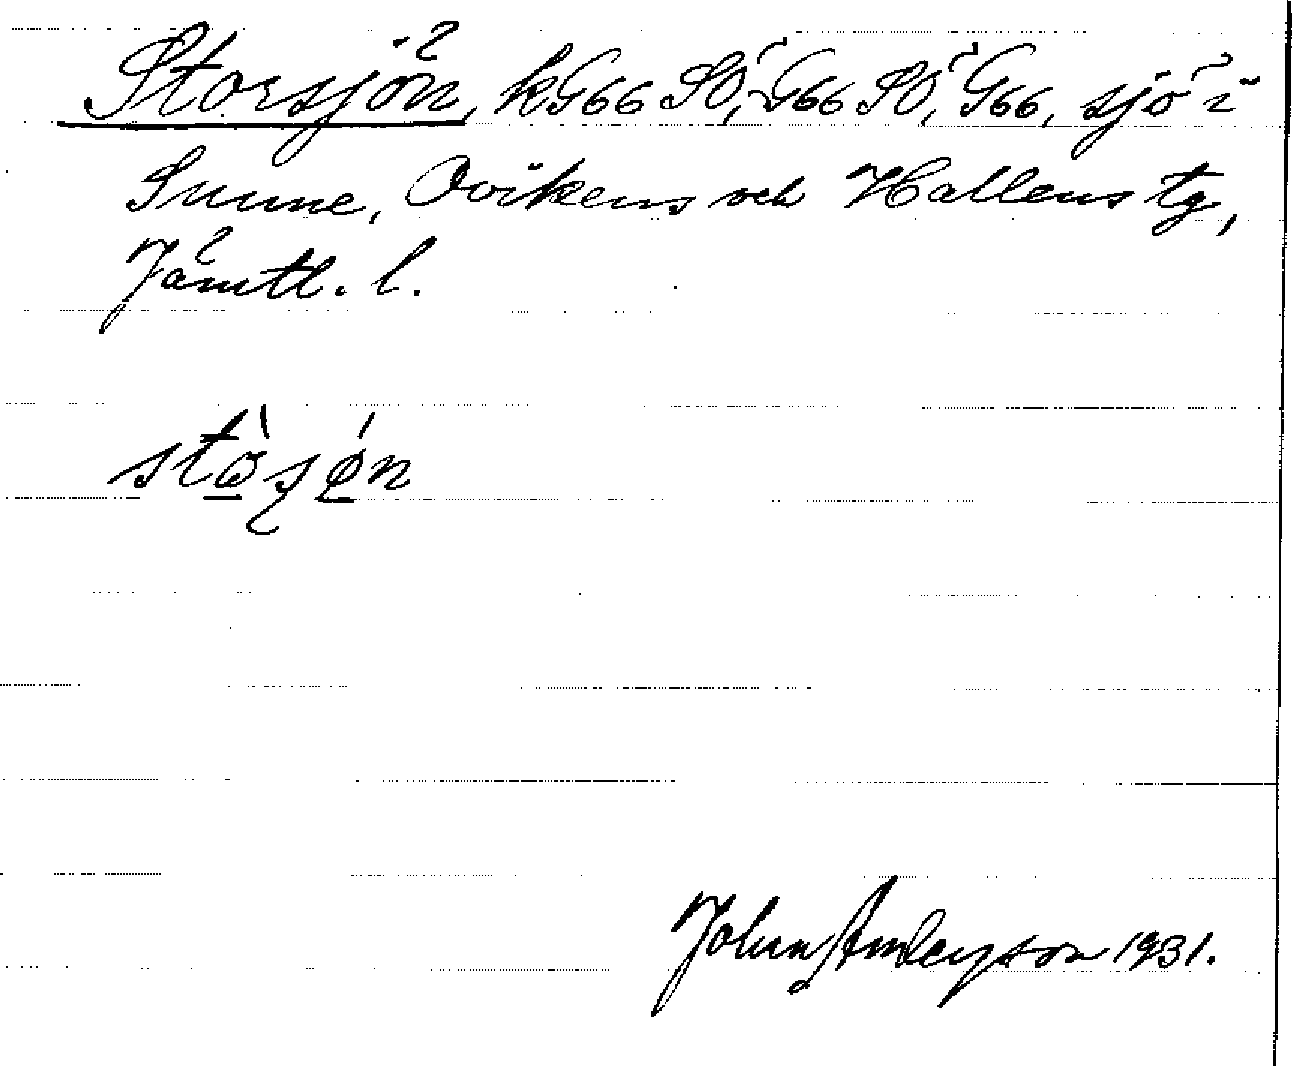 Storsjön, kG66 SO, G66 SO, G66, sjö i
Sunne, Ovikens och Hallens tg,
Jämtl. l.
John Andersson 1931.